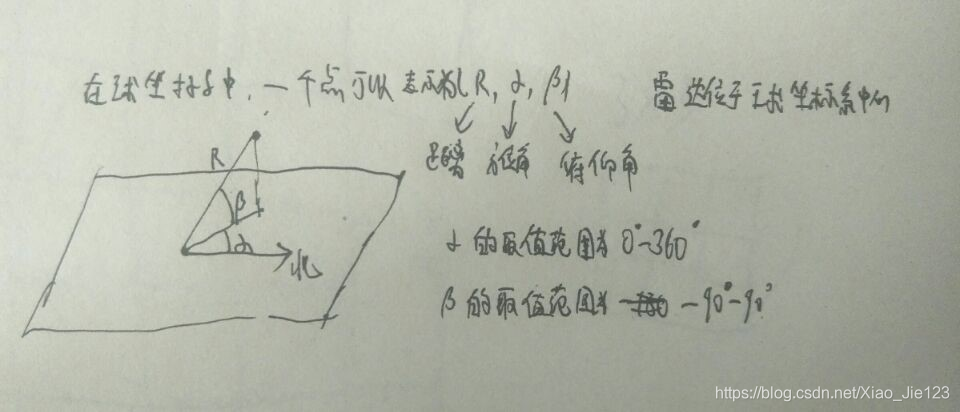 在球坐标系中,一个点可以表示为(R, α, β)
雷达位于球坐标系中心
距离 方位角 俯仰角
R
β
α
北
α的取值范围为 0°-360°
β的取值范围为 -90°-90°
https://blog.csdn.net/Xiao_Jie123